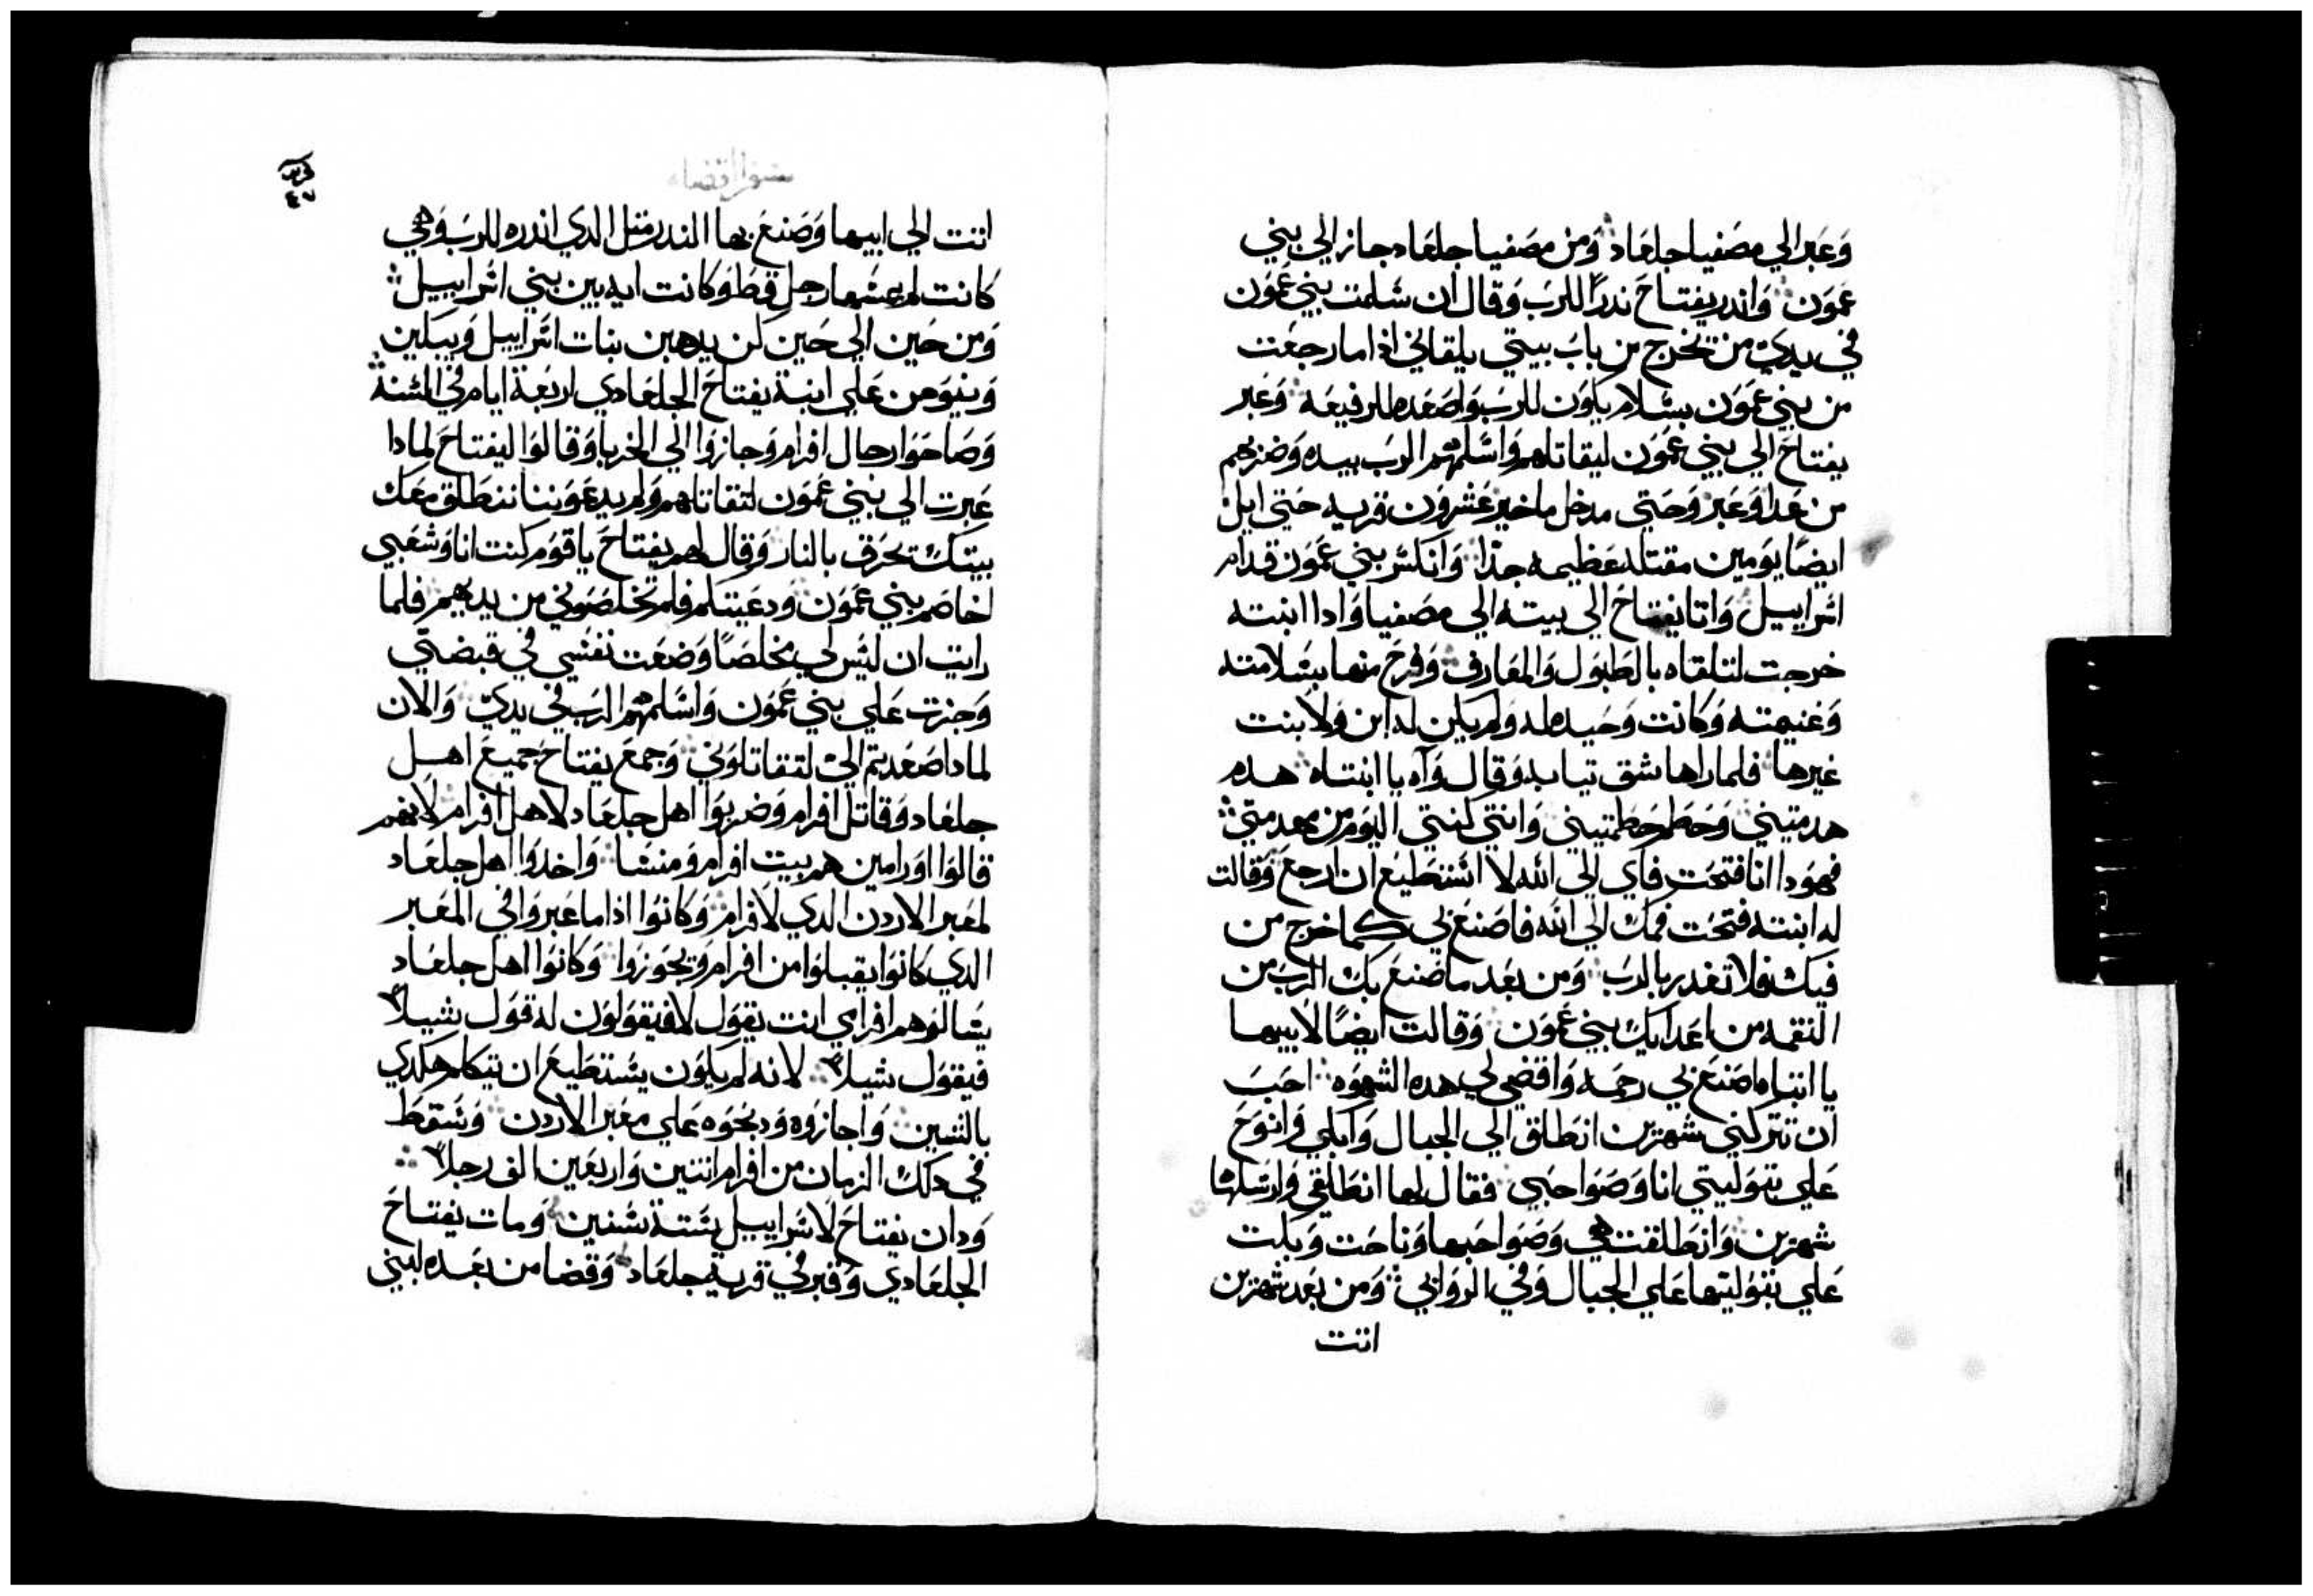 وَعَبَر الي مصَفيا جلعَاد وَمن مصَفيا جلعَاد جاز الي بني
عمَون وَاندر يفتاحَ ندرًا للربَ وَقال ان سَلمت بني عمَون
في يديّ من يخرج من بابَ بيتي يلقاني اذا ما رجعَت
من بني عمَون بسَلام يكوَن للربَ وَاصَعَده للرفيعَه وَعَبر
يفتاحَ الي بني عمَون ليقاتلهم وَاسَلمهَم الربَ بيده وَضربهم
من عَدا وَعَبر وَحَتي مدخل ماخير عَشروَن قريه حَتي ابل
ايضًا يوَمين مقتله عَظيمه جدًا وَانكسَر بني عمَون قدام
اسَراييل وَاتا يفتاحَ الي بيته الي مصَفيا وَادا ابنته
خرجت لتلقاه بالطبوَل وَالمعَازف وَفرحَ منها بسَلامته
وَغنيمته وَكانت وَحَيده له وَلم يكن له ابن وَلا بنت
غيرها فلما راها شق تيابه وَقال وَاه يا ابنتاه هده
هدمتيني وَحَطم حَطمتيني وَانتي كنتي اليوَم من مهدمتي
فهوَدا انا فتحَت فاي الي الله لا اسَتطيعَ ان ارجعَ وَقالت
له ابنته فتحَت فمك الي الله فاصَنعَ بي كما خرج من
فيك فلا تغدر بالربَ وَمن بعَد ما صَنعَ بك الربَ من
النقمه من اعَدايك بني عمَون وَقالت ايضًا لابيها
يا ابتاه اصَنعَ بي رحمَه وَاقضي لي هده الشهوَه احَبَ
ان تتركني شهرين انطلق الي الجبال وَابكي وَانوَحَ
عَلي بتوَليتي انا وَصَوَاحَبي فقال لها انطلقي وَارسَلها
شهرين وَانطلقت هي وَصَوَاحَبها وَناحَت وَبكت
عَلي بتوَليتها عَلي الجبال وَفي الروَابي وَمن بعَد شهرين
اتت
سفر القضاه
٤٧
اتت الي ابيها وَصَنعَ بها الندر متل الدي اندره للربَ وَهي
كانت لم يمسَها رجل قط وَكانت ايه بين بني اسَراييل
وَمن حَين الي حَين كن يدهبن بنات اسَراييل وَيبكين
وَينوَحن عَلي ابنة يفتاحَ الجلعَادي اربعَة ايام في السَنة
وَصَاحَوَا رجال افرام وَجازوَا الي الخربا وَقالوَا ليفتاحَ لمادا
عَبرت الي بني عمَون لتقاتلهم وَلم تدعَوَننا ننطلق معَك
بيتك يحَرق بالنار وَقال لهم يفتاحَ يا قوَم كنت انا وَشعَبي
اخاصَم بني عمَون وَدعَيتكم فلم تخلصَوَني من يديهم فلما
رايت ان ليسَ لي مخلصًا وَضعَت نفسَي في قبضتي
وَجزت عَلي بني عمَون وَاسَلمهَم الربَ في يديّ وَالان
لمادا صَعَدتم اليّ لتقاتلوَني وَجمعَ يفتاحَ جميعَ اهل
جلعَاد وَقاتل افرام وَضربوَا اهل جلعَاد لاهل افرام لانهم
قالوَا اوَرامين هم بيت افرام وَمنسَا وَاخدوَا اهل جلعَاد
لمعَبر الاردن الدي لافرام وَكانوَا اذا ما عَبروَا في المعَبر
الدي كانوَا يقبلوَا من افرام وَيجوَزوَا وَكانوَا اهل جلعَاد
يسَالوَهم افرامي انت يقوَل لا فيقوَلوَن له قوَل شيلا
فيقوَل سيلا لانه لم يكوَن يسَتطيعَ ان يتكلم هكدي
بالشين وَاجازوَه وَدبحَوَه عَلي معَبر الاردن وَسَقط
في دلك الزمان من افرام اتنين وَاربعَين الف رجلا
وَدان يفتاحَ لاسَراييل سَتة سَنين وَمات يفتاحَ
الجلعَادي وَقبر في قرية جلعَاد وَقضا من بعَده لبني